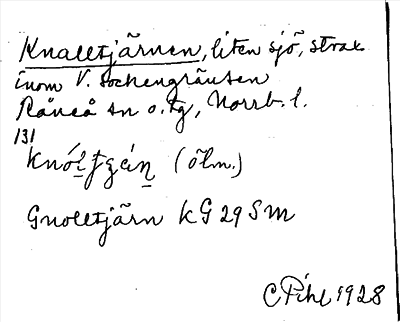 Knalltjärnen, liten sjö, strax
inom V. sockengränsen
Råneå sn o. tg, Norrb. l.
131
(ölm.)
Gnolltjärn KG 29 SM
C Pihl 1928